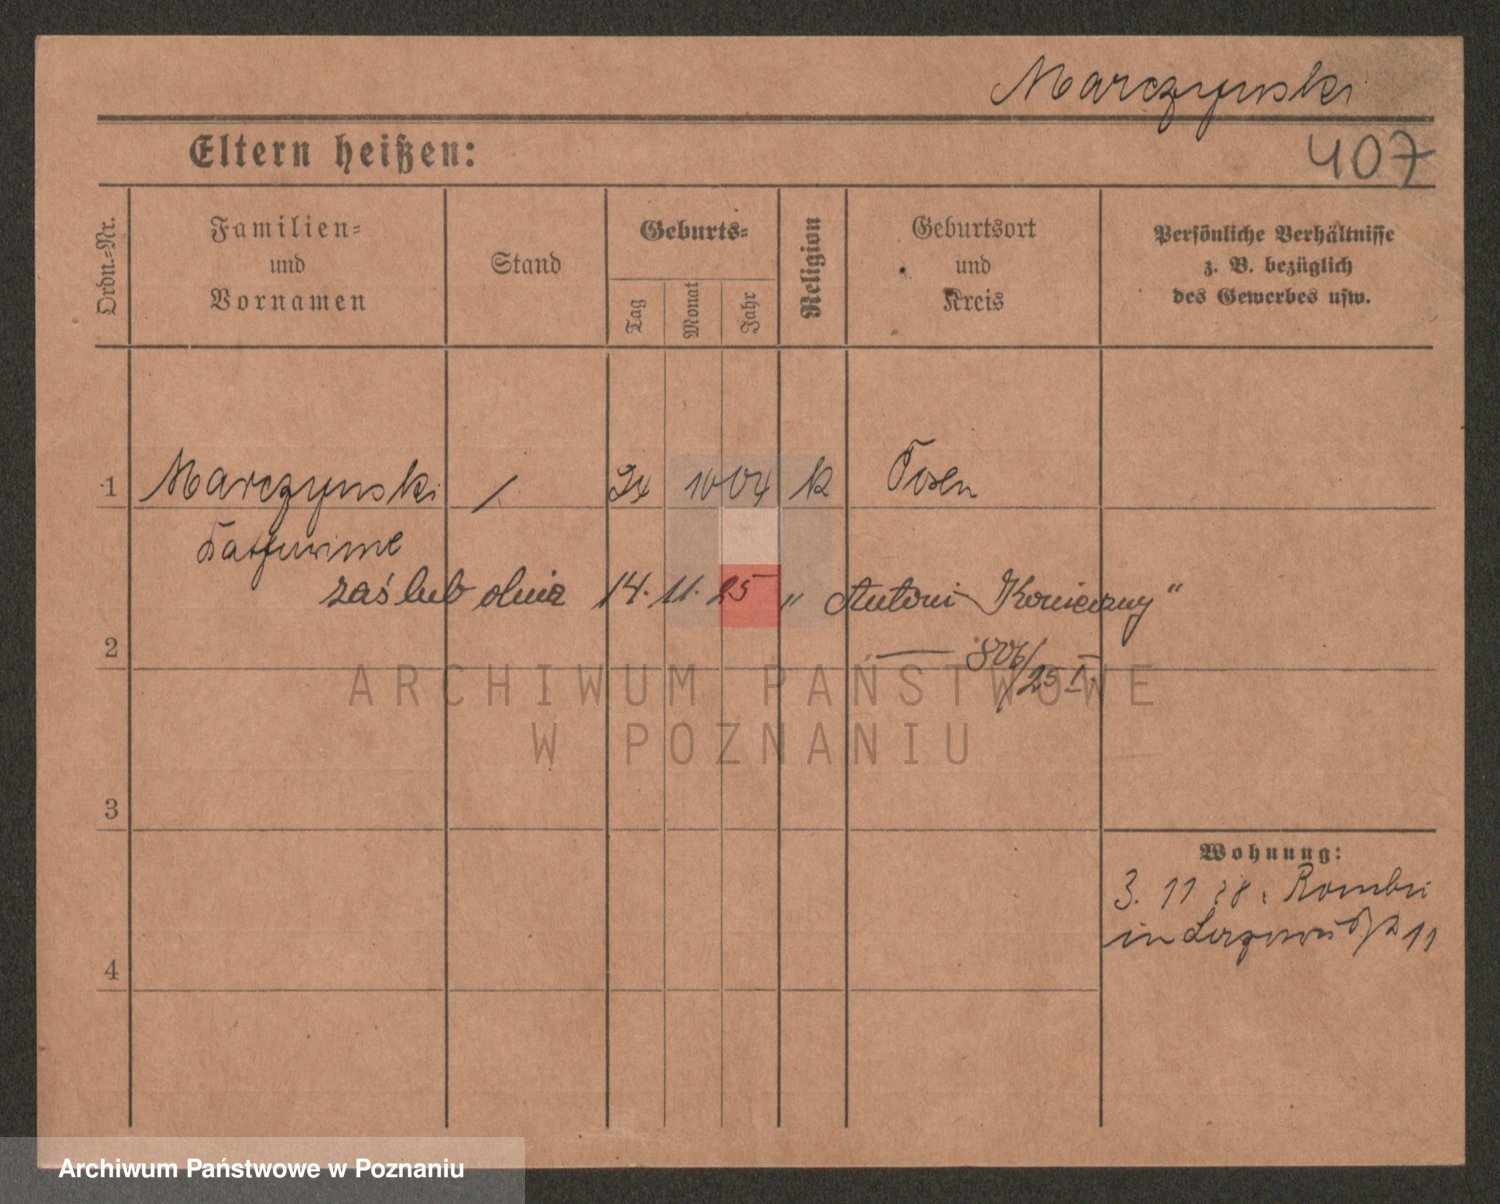 Marczynski
407
Eltern heißen:
Ordn.-Nr.
Familien- und Vornamen
Stand
Geburts-
Tag
Monat
Jahr
Religion
Geburtsort und Kreis
Persönliche Verhältnisse z. B. bezüglich des Gewerbes usw.
1 Marczynski / 24 10 04 k Posen
zaślub dnia 14. 11. 25 „Antoni Konieczny“
2
— 806/25 I.
ARCHIWUM PAŃSTWOWE
W POZNANIU
3
Wohnung:
3. 11
in 11
4
Archiwum Państwowe w Poznaniu